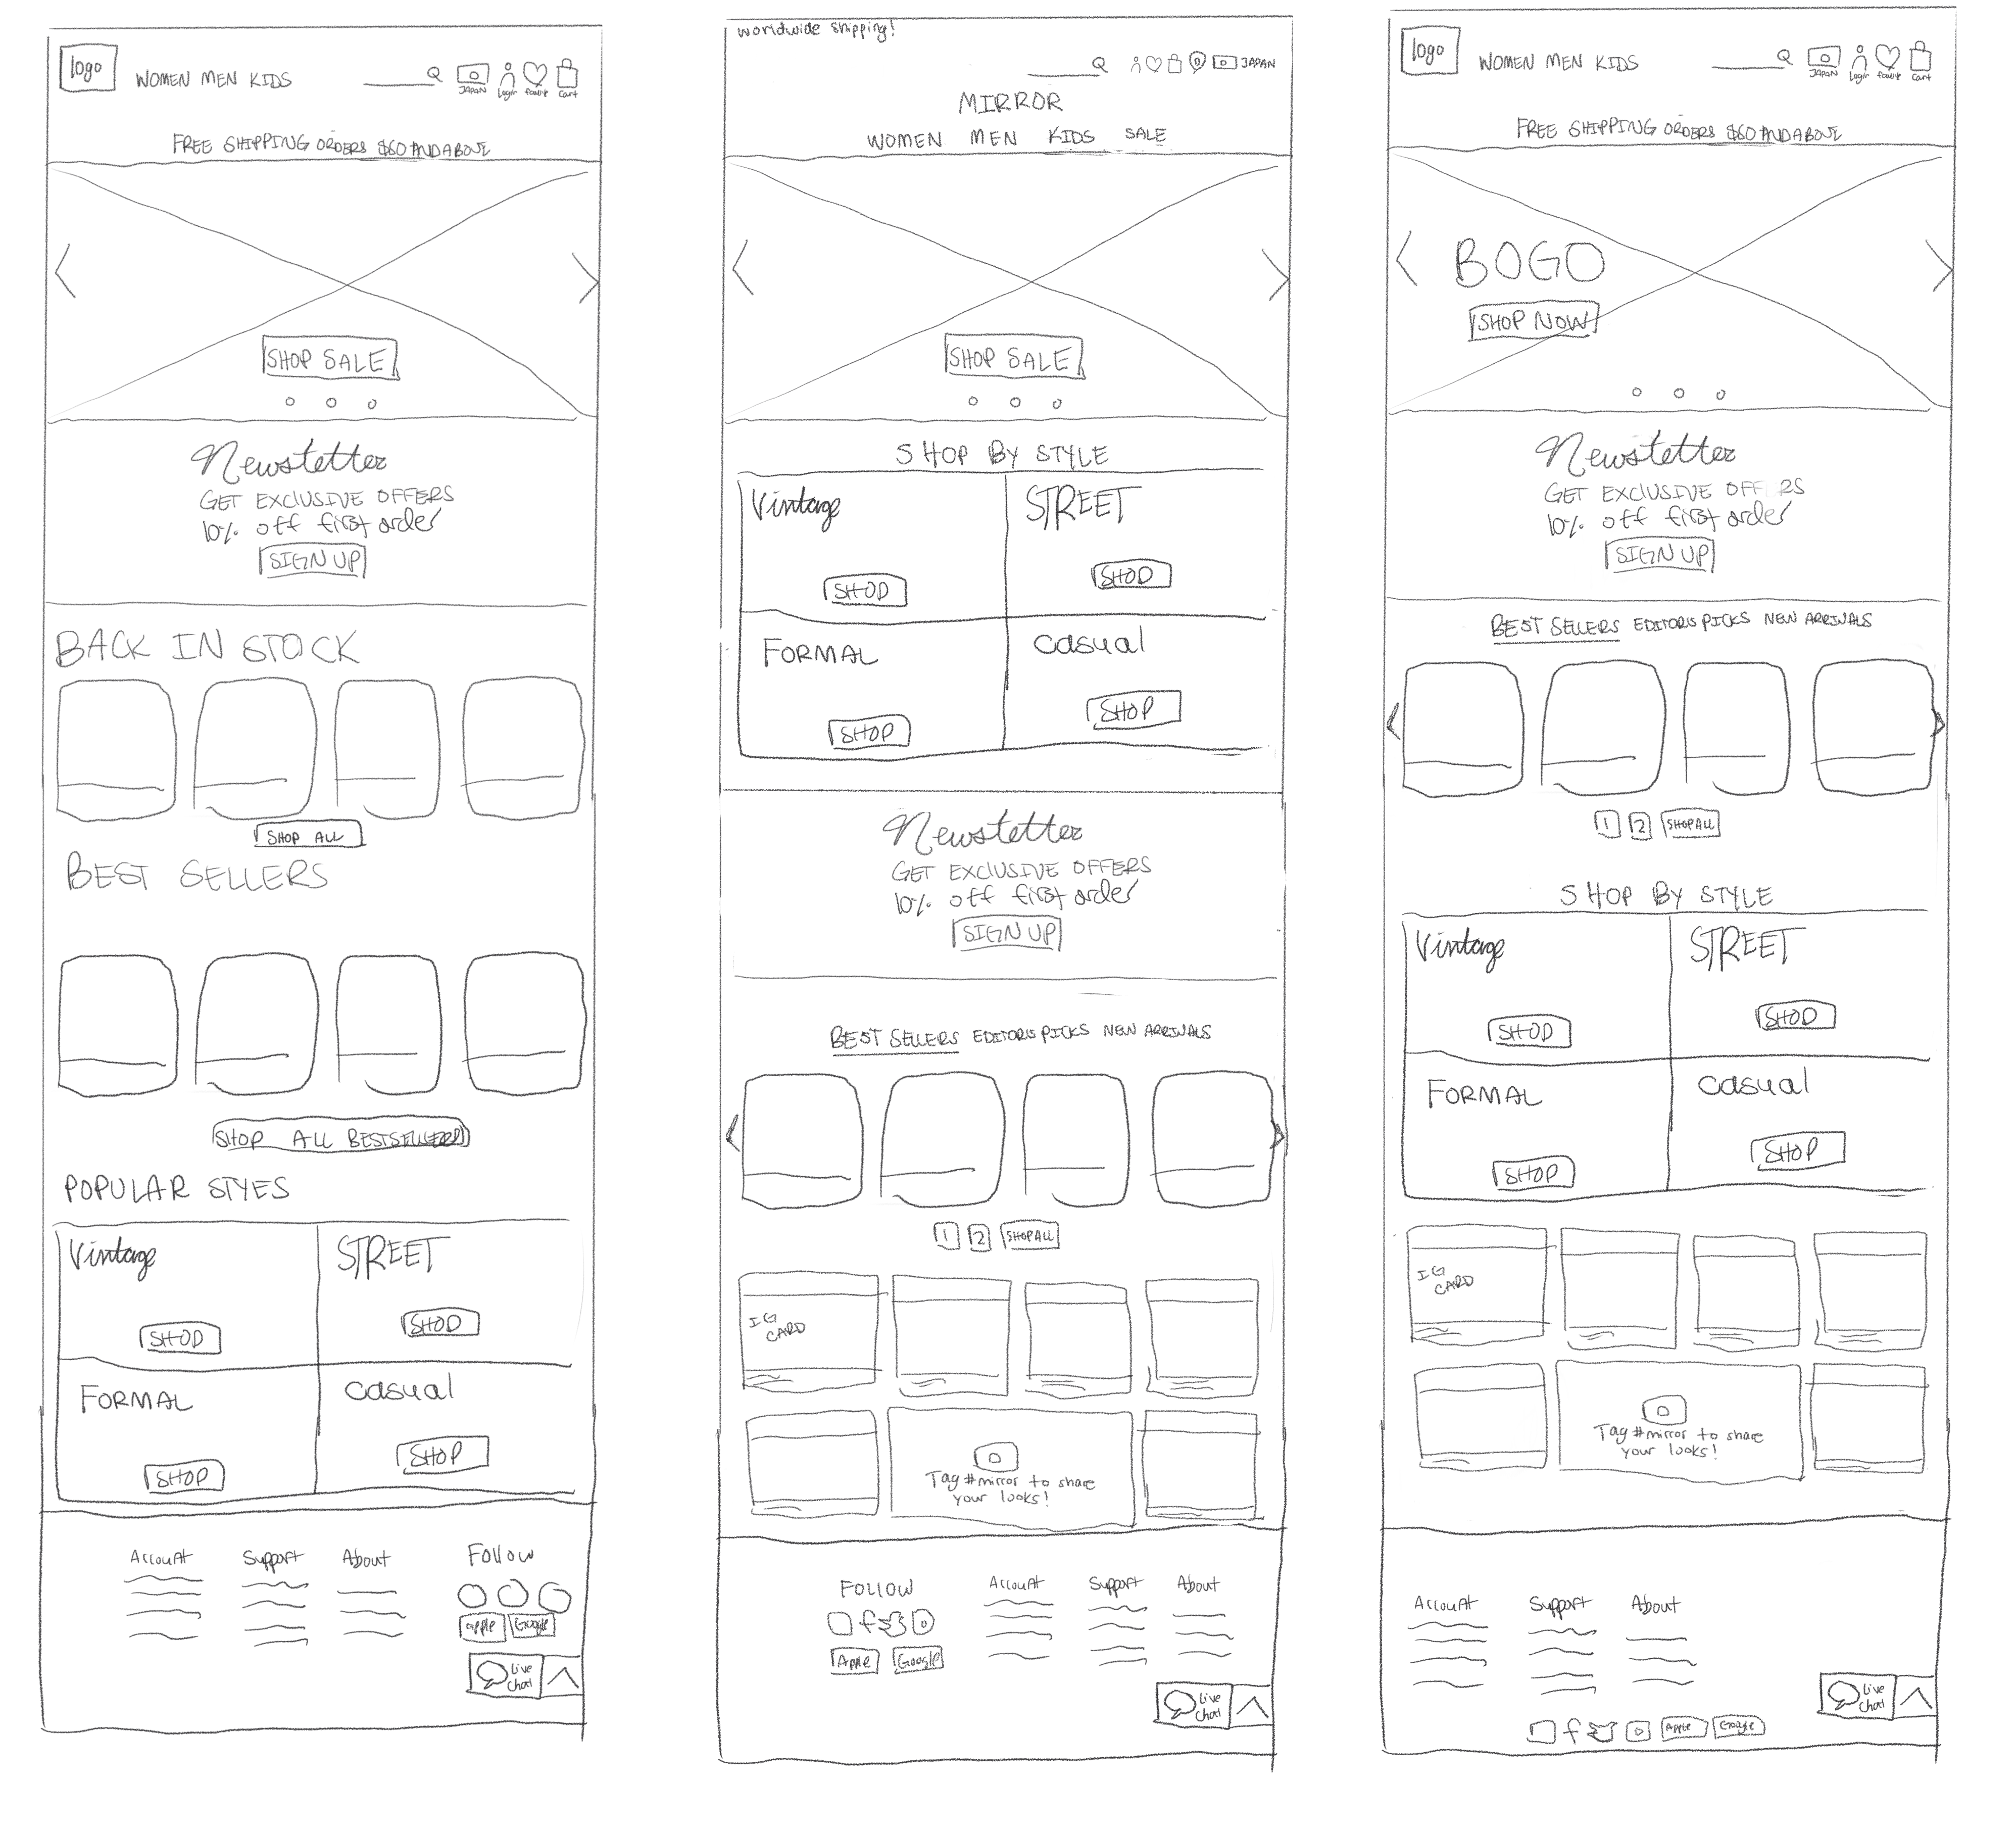 logo
WOMEN MEN KIDS
JAPAN Login Favorite Cart
FREE SHIPPING ORDERS $60 AND ABOVE
SHOP SALE
Newsletter
GET EXCLUSIVE OFFERS
10% off first order
SIGN UP
BACK IN STOCK
SHOP ALL
BEST SELLERS
SHOP ALL BESTSELLERS
POPULAR STYES
Vintage STREET
SHOP SHOP
FORMAL casual
SHOP SHOP
Account Support About Follow
apple Google
Live
Chat
worldwide shipping!
JAPAN
MIRROR
WOMEN MEN KIDS SALE
SHOP SALE
SHOP BY STYLE
Vintage STREET
SHOP SHOP
FORMAL casual
SHOP SHOP
Newsletter
GET EXCLUSIVE OFFERS
10% off first order
SIGN UP
BEST SELLERS EDITORS PICKS NEW ARRIVALS
1 2 SHOP ALL
IG
CARD
Tag #mirror to share
your looks!
FOLLOW Account Support About
f
Apple Google
Live
Chat
logo
WOMEN MEN KIDS
JAPAN Login Cart
FREE SHIPPING ORDERS $60 AND ABOVE
BOGO
SHOP NOW
Newsletter
GET EXCLUSIVE OFFERS
10% off first order
SIGN UP
BEST SELLERS EDITORS PICKS NEW ARRIVALS
1 2 SHOP ALL
SHOP BY STYLE
Vintage STREET
SHOP SHOP
FORMAL casual
SHOP SHOP
IG
CARD
Tag #mirror to share
your looks!
Account Support About
Live
Chat
f Apple Google